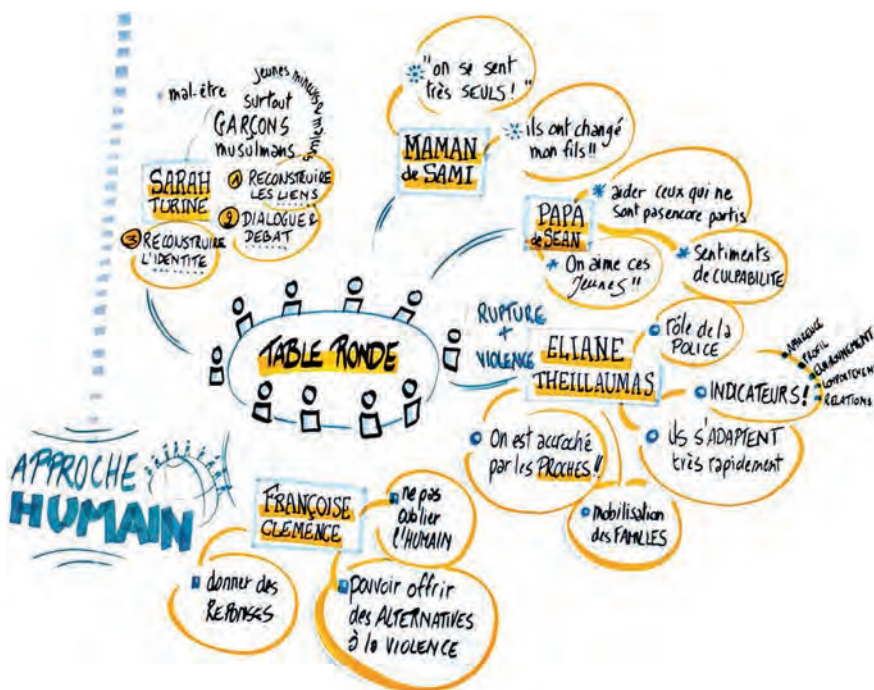 mal-être
jeunes mineurs & majeurs
surtout
GARÇONS
musulmans
SARAH
TURINE
1 RECONSTRUIRE
LES LIENS
2 DIALOGUE &
DEBAT
3 RECONSTRUIRE
L'IDENTITE
MAMAN
de SAMI
"on se sent
très SEULS!"
ils ont changé
mon fils!!
PAPA
de SEAN
aider ceux qui ne
sont pas encore partis
Sentiments
de CULPABILITE
On aime ces
Jeunes!!
TABLE RONDE
RUPTURE
+
VIOLENCE
ELIANE
THEILLAUMAS
rôle de la
POLICE
INDICATEURS!
APPARENCE
PROFIL
COMPORTEMENT
RELATIONS
ils s'ADAPTENT
très rapidement
On est accroché
par les PROCHES!!
mobilisation
des FAMILLES
APPROCHE
HUMAIN
FRANÇOISE
CLEMENCE
ne pas
oublier
l'HUMAIN
donner des
REPONSES
pouvoir offrir
des ALTERNATIVES
à la VIOLENCE